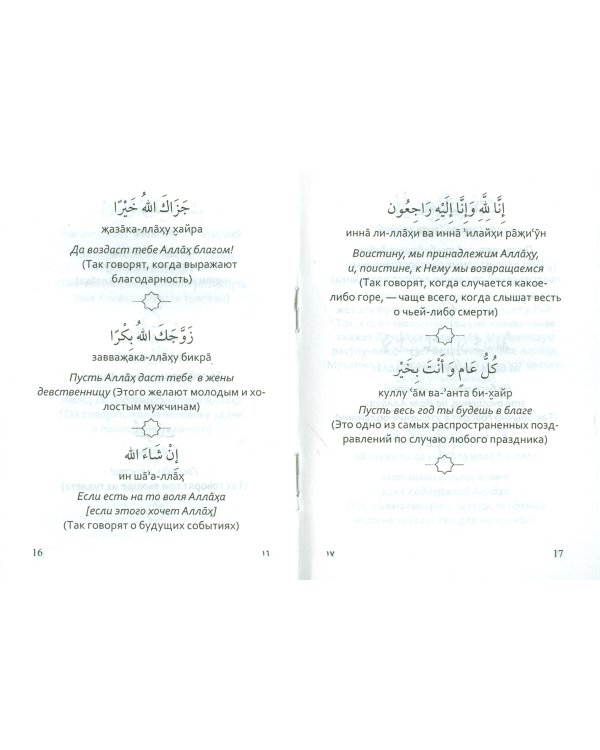 جَزَاكَ اللهُ خَيْرًا
җаза̄ка-лла̄ҳу х̮айра
Да воздаст тебе Алла̄ҳ благом!
(Так говорят, когда выражают
благодарность)
زَوَّجَكَ اللهُ بِكْرًا
завваҗака-лла̄ҳу бикра̄
Пусть Алла̄ҳ даст тебе в жены
девственницу (Этого желают молодым и хо-
лостым мужчинам)
إِنْ شَاءَ الله
ин ша̄ʾа-лла̄ҳ
Если есть на то воля Алла̄ҳа
[если этого хочет Алла̄ҳ]
(Так говорят о будущих событиях)
16
١٦
إِنَّا لِلَّهِ وَإِنَّا إِلَيْهِ رَاجِعُون
инна̄ ли-лла̄ҳи ва инна̄ ʾилайҳи ра̄җиʿӯн
Воистину, мы принадлежим Алла̄ҳу,
и, поистине, к Нему мы возвращаемся
(Так говорят, когда случается какое-
либо горе, — чаще всего, когда слышат весть
о чьей-либо смерти)
كُلُّ عَامٍ وَ أَنْتَ بِخَيْر
куллу ʿа̄м ва-ʾанта би-х̮айр
Пусть весь год ты будешь в благе
(Это одно из самых распространенных позд-
равлений по случаю любого праздника)
١٧
17